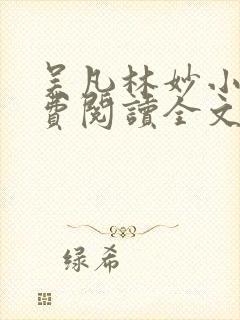 吴凡林妙小
費閱讀全文
绿希